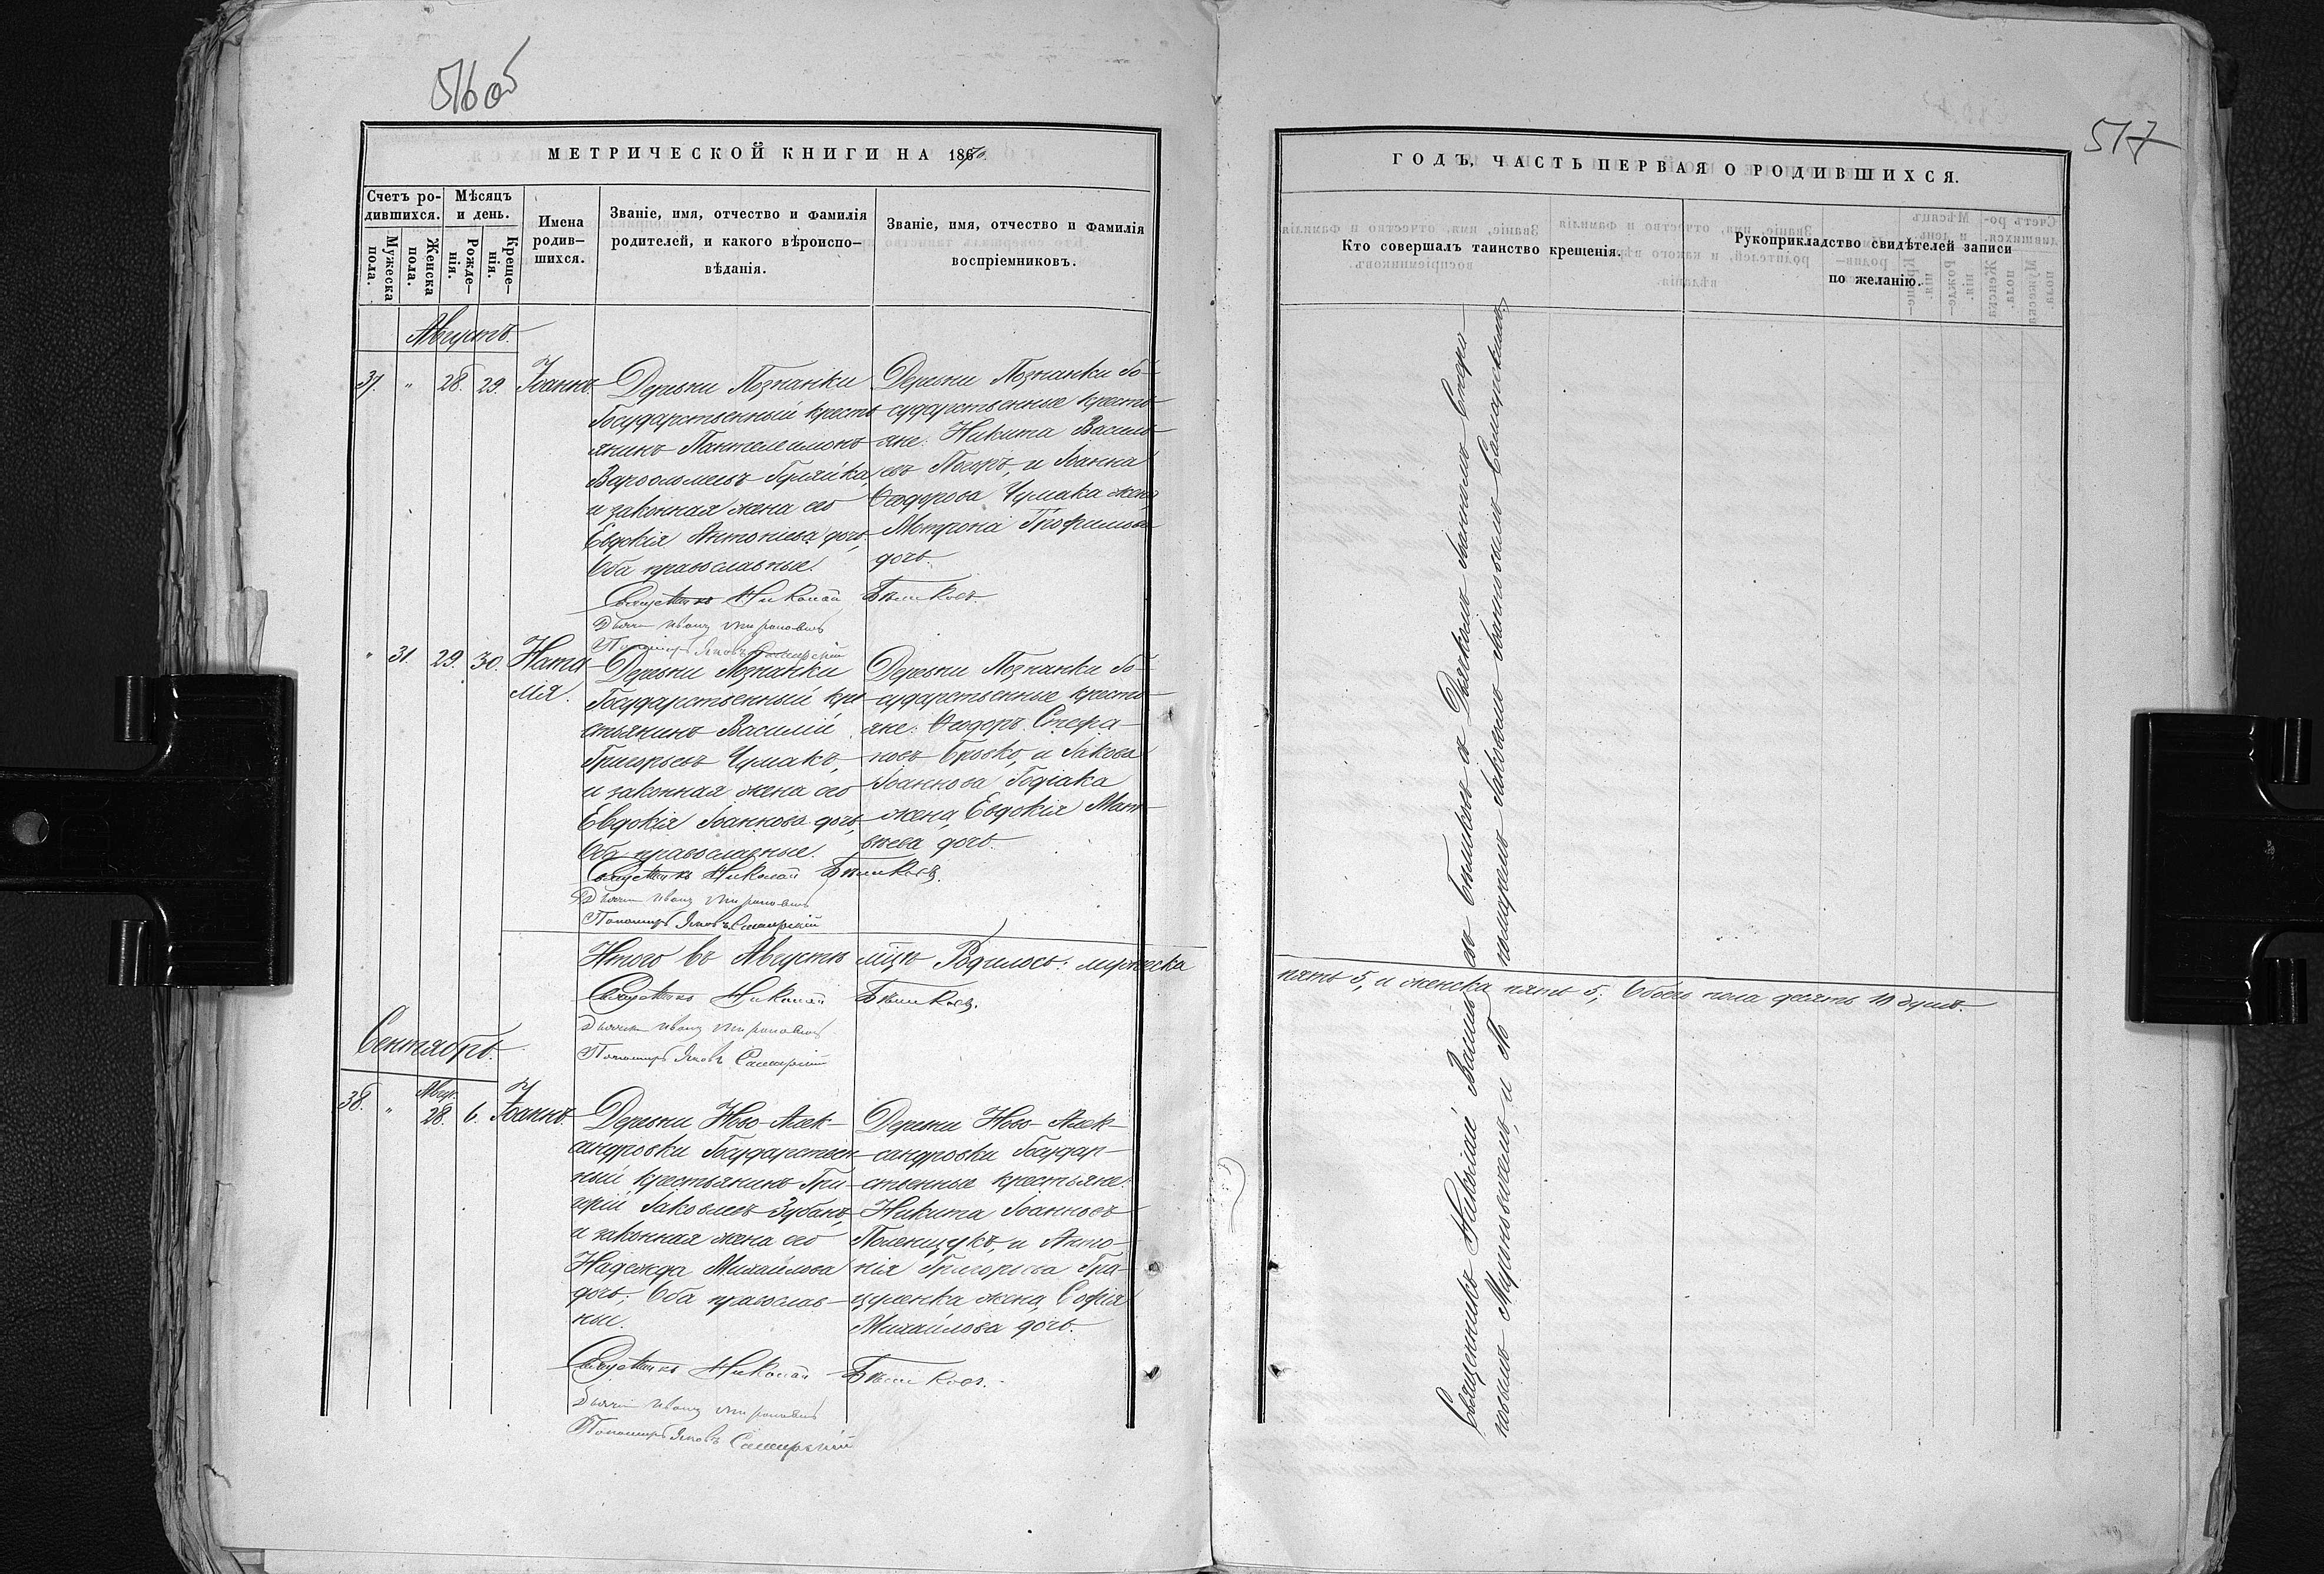 516 об
МЕТРИЧЕСКОЙ КНИГИ НА 1870.
Счетъ ро-
дившихся.
Мѣсяцъ
и день.
Имена
родив-
шихся.
Званіе, имя, отчество и фамилія
родителей, и какого вѣроиспо-
вѣданія.
Званіе, имя, отчество и фамилія
воспріемниковъ.
Мужеска
пола.
Женска
пола.
Рожде-
нія.
Креще-
нія.
Августъ.
37. " 28. 29. Іоаннъ.
Деревни Познанки
Государственный кресть-
янинъ Пантелеимонъ
Варѳоломеевъ Гуляйка,
и законная жена его
Евдокія Антоніева дочь,
Оба православные.
Деревни Познанки Го-
сударственные кресть-
яне: Никита Василь-
евъ и Іоанна
Ѳеодорова Чумака жена,
Мотрона Трофимова
дочь.
Священникъ Николай Бѣликовъ.
Дьячекъ Иванъ Миронович
Пономарь Яковъ Самарскій
" 31. 29. 30. Ната-
лія.
Деревни Познанки
Государственный кре-
стьянинъ Василій
Григорьевъ Чумакъ,
и законная жена его
Евдокія Іоаннова дочь,
Оба православные.
Деревни Познанки Го-
сударственные кресть-
яне: Ѳеодоръ Стефа-
новъ и Іакова
Іоаннова Годіака
жена, Евдокія Мат-
вѣева дочь.
Священникъ Николай Бѣликовъ.
Дьячекъ Иванъ Миронович
Пономарь Яковъ Самарскій
Итого въ Августѣ мцѣ Родилось: мужеска
Священникъ Николай Бѣликовъ.
Дьячекъ Иванъ Миронович
Пономарь Яковъ Самарскій
Сентябрь.
38. " Авгус. 28. 6. Іоаннъ.
Деревни Ново-Алек-
сандровки Государствен-
ный крестьянинъ Гри-
горій Іаковлевъ Зубанъ,
и законная жена его
Надежда Михайлова
дочь; Оба православ-
ные.
Деревни Ново-Алек-
сандровки Государ-
ственные крестьяне:
Никита Іоанновъ
Поленщукъ, и Анто-
нія Григорьева Гра-
щенка жена, Софія
Михайлова дочь.
Священникъ Николай Бѣликовъ.
Дьячекъ Иванъ Миронович
Пономарь Яковъ Самарскій
517
ГОДЪ, ЧАСТЬ ПЕРВАЯ О РОДИВШИХСЯ.
Кто совершалъ таинство крещенія.
Рукоприкладство свидѣтелей записи
по желанію.
Священникъ Николай Василь-евъ Бѣликовъ съ Дьячкомъ Іоанномъ Стефа-
новымъ Мироновичемъ, и По-номаремъ Іаковомъ Іоанновымъ Самарскимъ,
пять 5, и женска пять 5; Обоего пола десять 10 душъ.